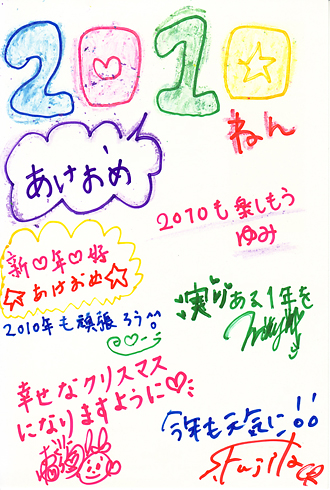 2010
ねん
あけおめ
2010も楽しもう
ゆみ
新年好
あけおめ
2010年も頑張ろう
実りある1年を
幸せなクリスマス
になりますように
今年も元気に!!
Fujita